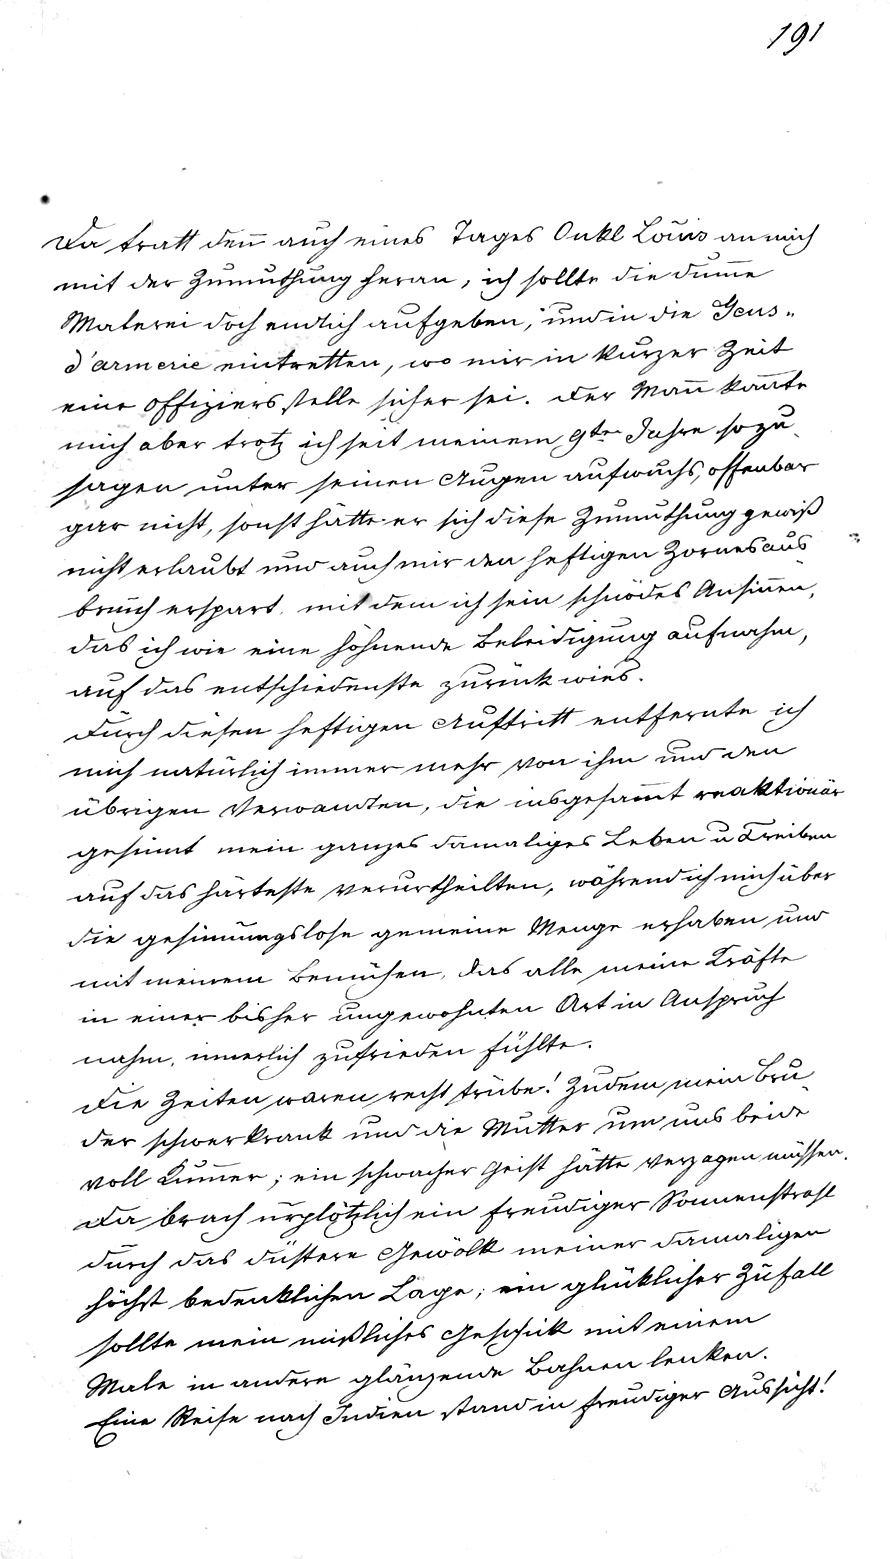 191
Da tratt den̄ auch eines Tages Onkl Louis an mich
mit der Zumuthung heran, ich sollte die dum̄e
Malerei doch endlich aufgeben, und in die Gens-
d'armerie eintretten, wo mir in kurzer Zeit
eine Offiziersstelle sicher sei. Der Man̄ kan̄te
mich aber trotz ich seit meinem 9ten Jahre so zu
sagen unter seinen Augen aufwuchs, offenbar
gar nicht, sonst hätte er sich diese Zumuthung gewiß
nicht erlaubt und auch mir den heftigen Zornesaus
bruch erspart, mit dem ich sein schnödes Ansin̄en,
das ich wie eine höhnende Beleidigung aufnahm,
auf das entschiedenste zurück wies.
Durch diesen heftigen Auftritt entfernte ich
mich natürlich immer mehr von ihm und den
übrigen Verwandten, die insgesam̄t reaktionär
gesinnt mein ganzes damaliges Leben u Treiben
auf das härteste verurtheilten, während ich mich über
die gesinnungslose gemeine Menge erhaben und
mit meinem Bemühen, das alle meine Kräfte
in einer bisher ungewohnten Art in Anspruch
nahm, innerlich zufrieden fühlte.
Die Zeiten waren recht trübe! Zudem mein Bru
der schwerkrank und die Mutter um uns beide
voll Kum̄er; ein schwacher Geist hätte verzagen müssen.
Da brach urplötzlich ein freudiger Sonnenstrahl
durch das düstere Gewölk meiner damaligen
höchst bedenklichen Lage; ein glüklicher Zufall
sollte mein mißliches Geschick mit einem
Male in andere glänzende Bahnen lenken.
Eine Reise nach Indien stand in freudiger Aussicht!